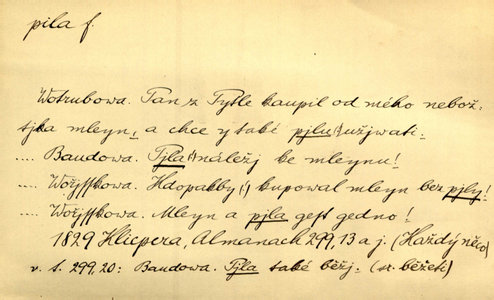 pila f.
Wotrubowa. Pan z Pytle kaupil od mého nebož-
tjka mleyn, a chce y také pjlu(!) užjwati.
.... Baudowa. Pjla(!) náležj ke mleynu!
.... Wořjsskowa. Kdopakby(!) kupowal mleyn bez pjly!
.... Wořjsskowa. Mleyn a pjla gest gedno!
1829 Klicpera, Almanach 299, 13 a j. (Každý něco)
v. t. 299, 20: Baudowa. Pjla také běžj. (sr. běžeti)